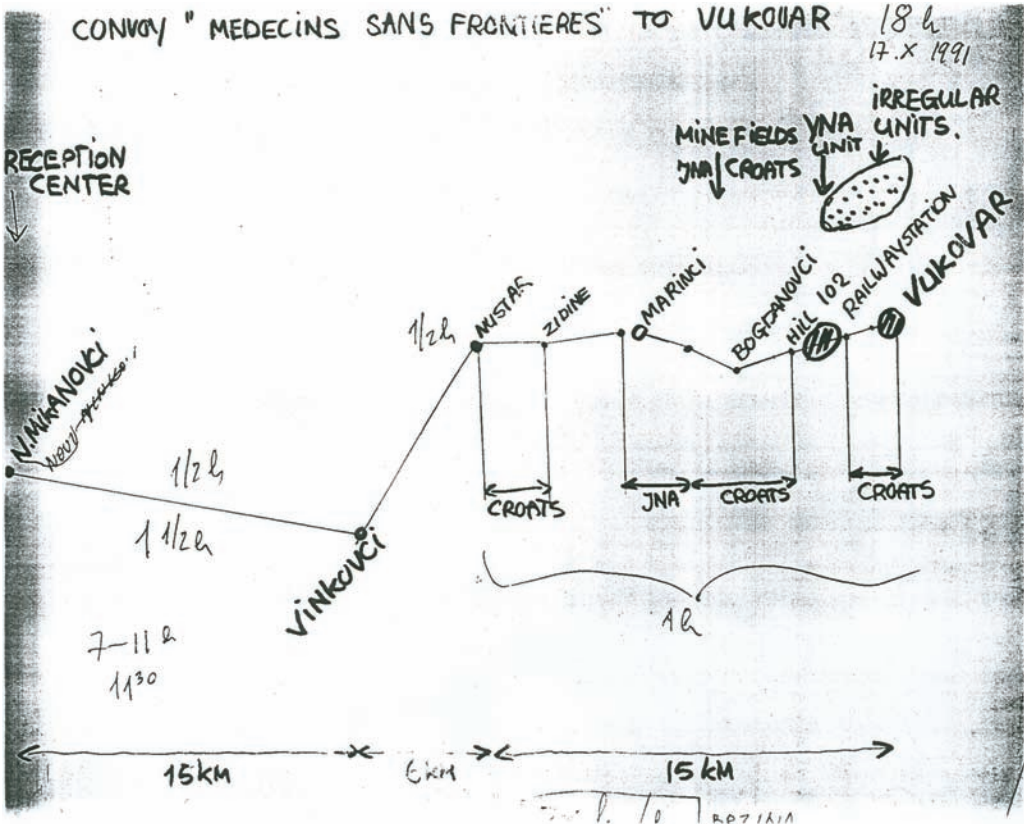 CONVOY "MEDECINS SANS FRONTIERES" TO VUKOVAR
18 h
17.X 1991
RECEPTION
CENTER
MINEFIELDS
JNA CROATS
JNA
UNIT
IRREGULAR
UNITS.
N.MIKANOVCI
1/2 h
1 1/2 h
VINKOVCI
1/2 h
NUSTAR
ZIDINE
MARINCI
BOGDANOVCI
HILL 102
RAILWAYSTATION
VUKOVAR
CROATS
JNA
CROATS
CROATS
1 h
7-11 h
11 30
15 KM
6 KM
15 KM